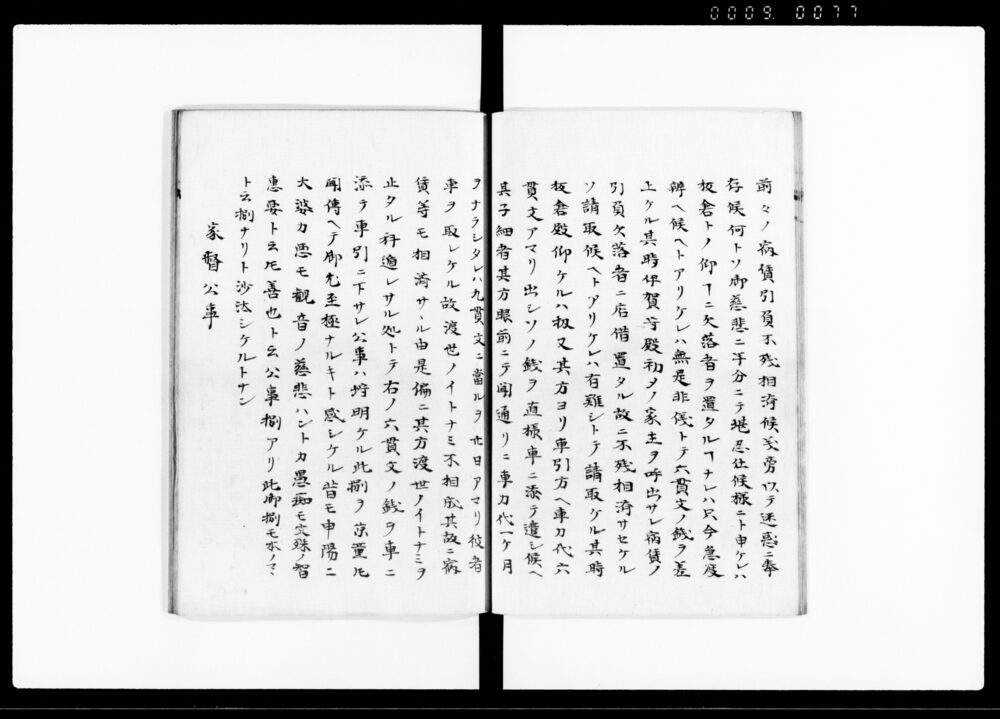 0009 0077
前々ノ病賃引負不残相済候義旁以テ迷惑ニ奉
存候何トソ御慈悲ニ半分ニテ堪忍仕候様ニト申ケレハ
板倉トノ仰ヿニ欠落者ヲ置タルヿナレハ只今急度
辨ヘ候ヘトアリケレハ無是非儀トテ六貫文ノ銭ヲ差
上ケル其時伊賀守殿初メノ家主ヲ呼出サレ病賃ノ
引負欠落者ニ店借置タル故ニ不残相済サセケル
ソ請取候ヘトアリケレハ有難シトテ請取ケル其時
板倉殿仰ケルハ扨又其方ヨリ車引方ヘ車力代六
貫文アマリ出シソノ銭ヲ直様車ニ添テ遣シ候ヘ
其子細者其方眼前ニテ聞通リニ車力代一ケ月
ヲナラシタレハ九貫文ニ當ルヲ廿日アマリ役者
車ヲ取レケル故渡世ノイトナミ不相成其故ニ病
賃等モ相済サヽル由是偏ニ其方渡世ノイトナミヲ
止タル科遁レサル処トテ右ノ六貫文ノ銭ヲ車ニ
添テ車引ニ下サレ公事ハ埒明ケル此捌ヲ京童𪜈
聞傳ヘテ御尤至極ナルキト感シケル皆モ申陽ニ
大婆カ悪モ観音ノ慈悲ハントカ愚痴モ文殊ノ智
恵要ト云𪜈善也ト云公事捌アリ此御捌モ本ノマヽ
ト云捌ナリト沙汰シケルトナン
家督公事